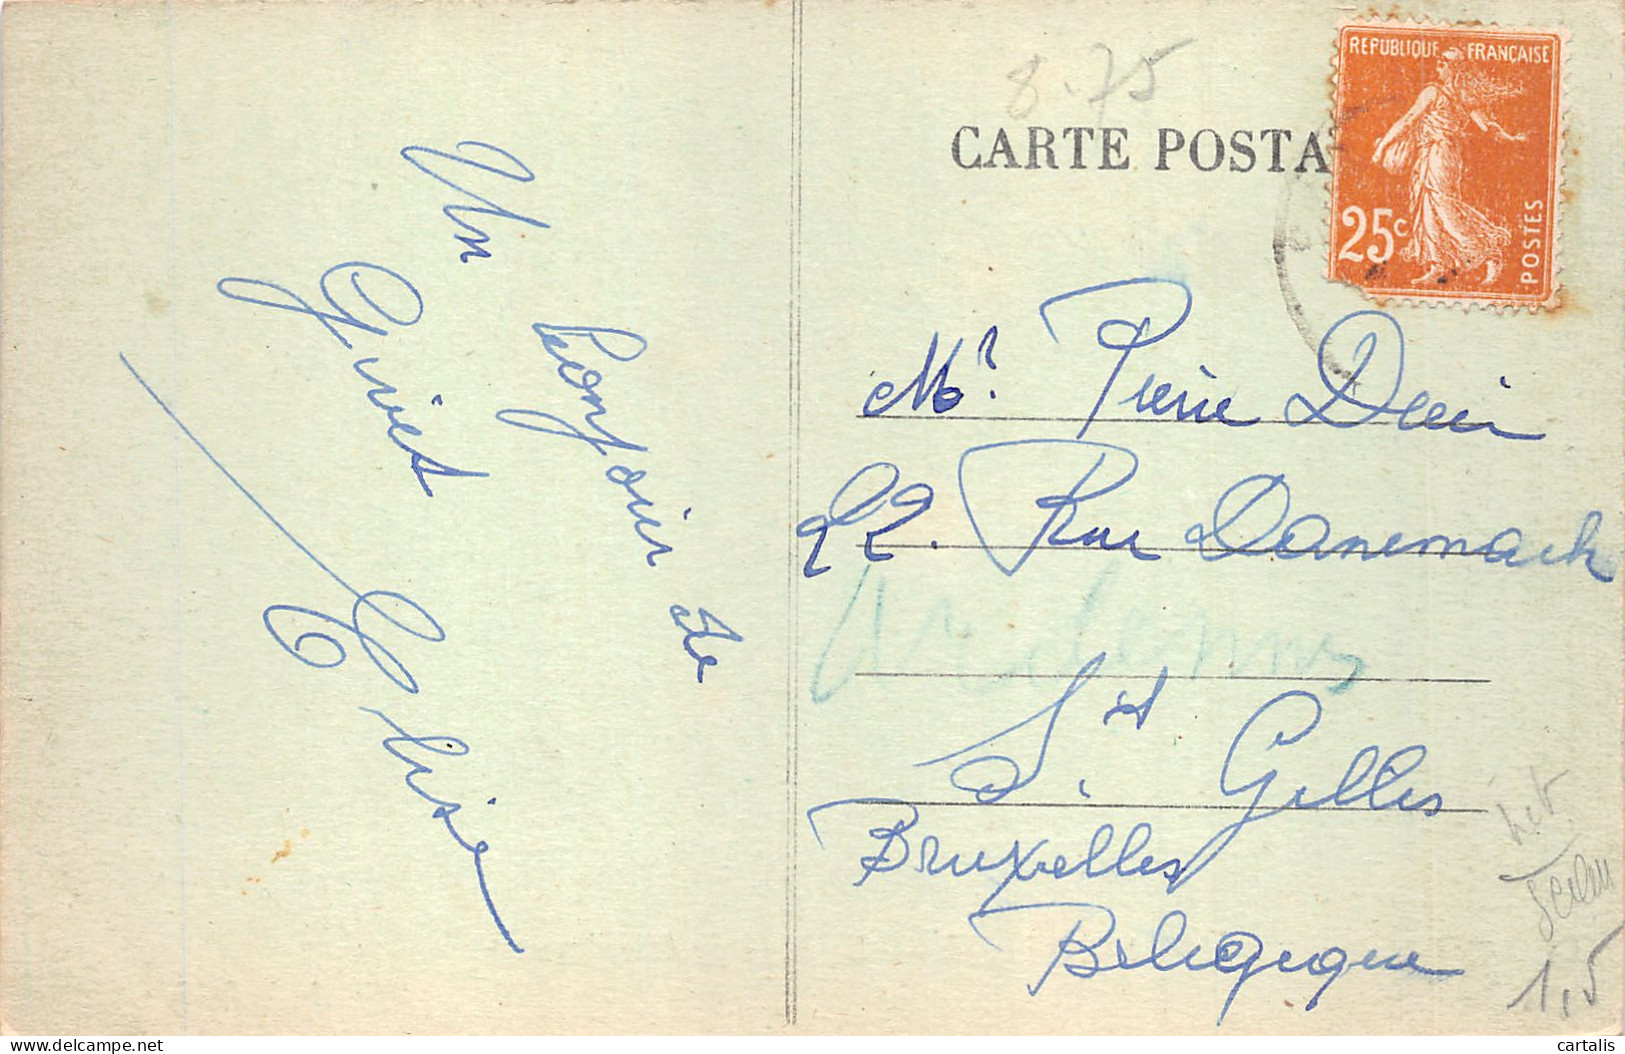 8.75
CARTE POSTA
REPUBLIQUE FRANÇAISE
25c
POSTES
Un bonjour de
Givet
Elise
Mr. Pierre
22. Rue Danemark
Ardennes
St. Gilles
Bruxelles
Belgique
Sedan
1,5
cartalis
delcampe.net